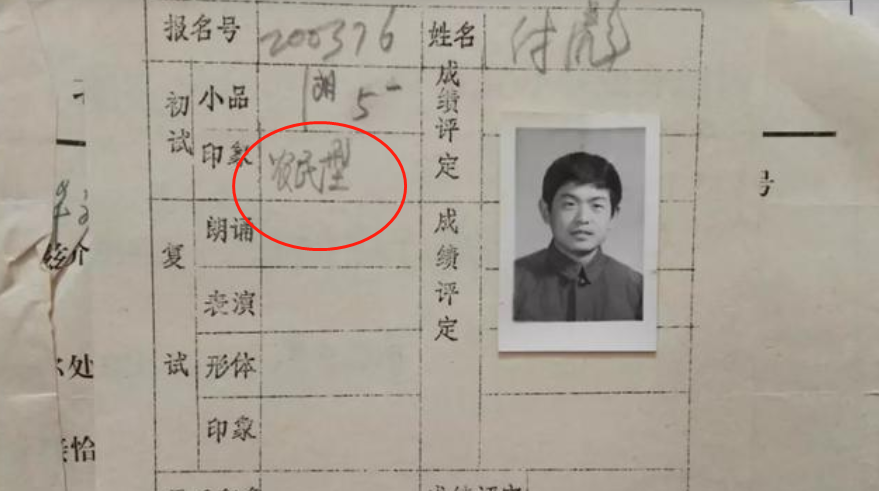 报名号 200376 姓名 付彪
初试 小品 朗 5- 成绩评定
印象 农民型
复试 朗诵 成绩评定
表演
形体
印象
号
介
处
恰